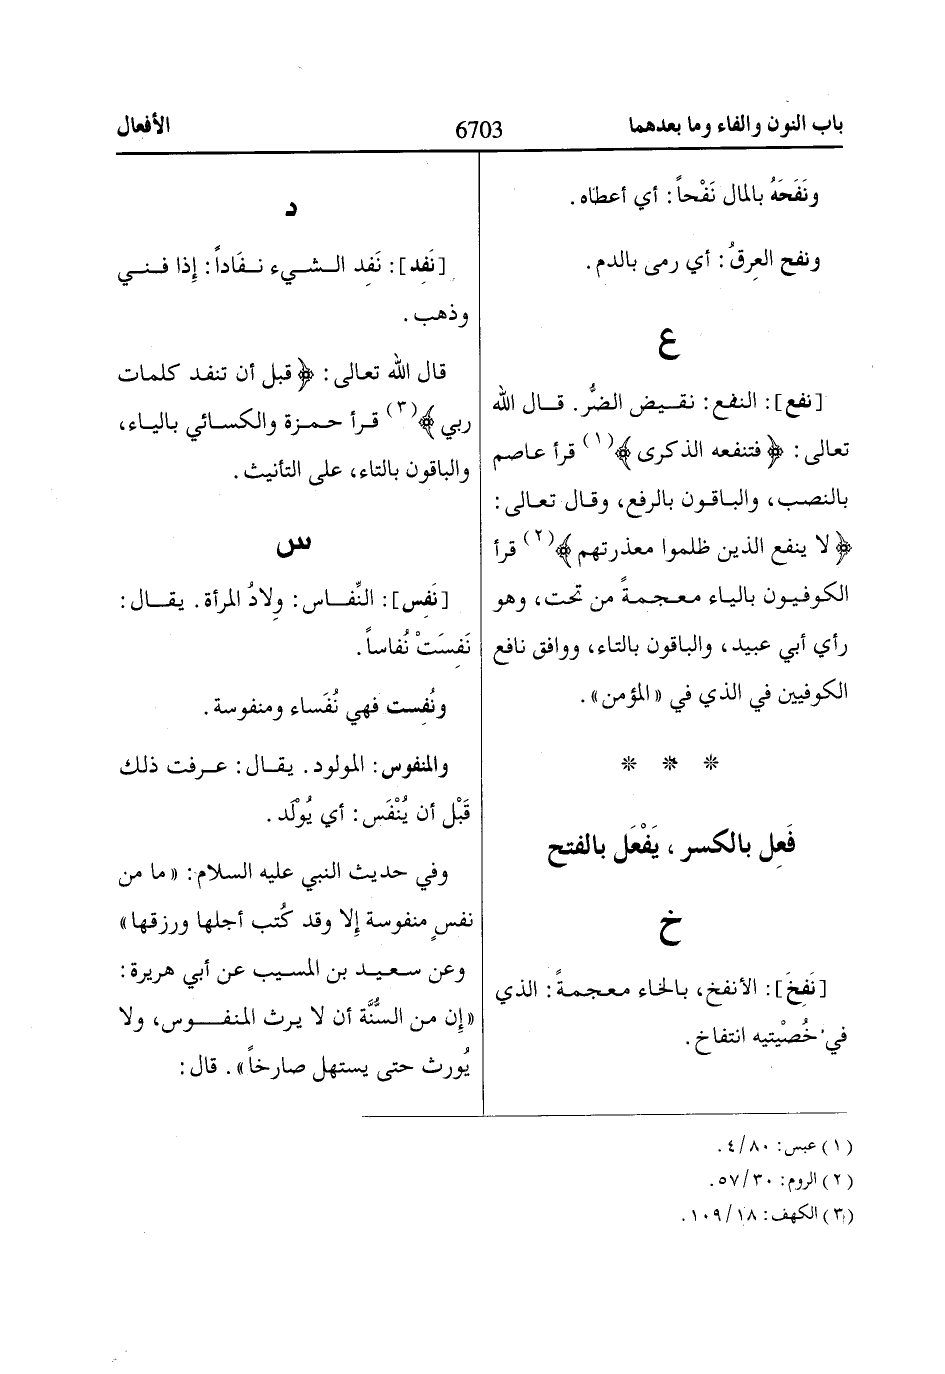 باب النون والفاء وما بعدهما 6703 الأفعال
ونَفَحَهُ بالمال نَفْحاً: أي أعطاه.
ونفح العِرقُ: أي رمى بالدم.
ع
[نفع]: النفع: نقيض الضرُّ. قال الله
تعالى: ﴿فتنفعه الذكرى﴾(١) قرأ عاصم
بالنصب، والباقون بالرفع، وقال تعالى:
﴿لا ينفع الذين ظلموا معذرتهم﴾(٢) قرأ
الكوفيون بالياء معجمةً من تحت، وهو
رأي أبي عبيد، والباقون بالتاء، ووافق نافع
الكوفيين في الذي في «المؤمن».
* * *
فَعِل بالكسر، يَفْعَل بالفتح
خ
[نَفِخَ]: الأنفخ، بالخاء معجمةً: الذي
في خُصْيتيه انتفاخ.
د
[نَفِد]: نَفِد الشيء نفَاداً: إذا فني
وذهب.
قال الله تعالى: ﴿قبل أن تنفد كلمات
ربي﴾(٣) قرأ حمزة والكسائي بالياء،
والباقون بالتاء، على التأنيث.
س
[نَفِس]: النِّفاس: وِلادُ المرأة. يقال:
نَفِسَتْ نُفاساً.
ونُفِست فهي نُفَساء ومنفوسة.
والمنفوس: المولود. يقال: عرفت ذلك
قَبْل أن يُنْفَس: أي يُوْلَد.
وفي حديث النبي عليه السلام: «ما من
نفسٍ منفوسة إلا وقد كُتب أجلها ورزقها»
وعن سعيد بن المسيب عن أبي هريرة:
«إن من السُّنَّة أن لا يرث المنفوس، ولا
يُورث حتى يستهل صارخاً». قال:
(١) عبس: ٨٠/٤.
(٢) الروم: ٣٠/٥٧.
(٣) الكهف: ١٨/١٠٩.